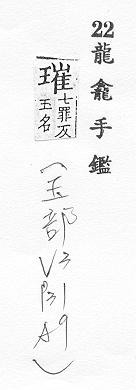 22龍龕手鑑
璀七罪反
玉名
(玉部
V3
P31
A9)